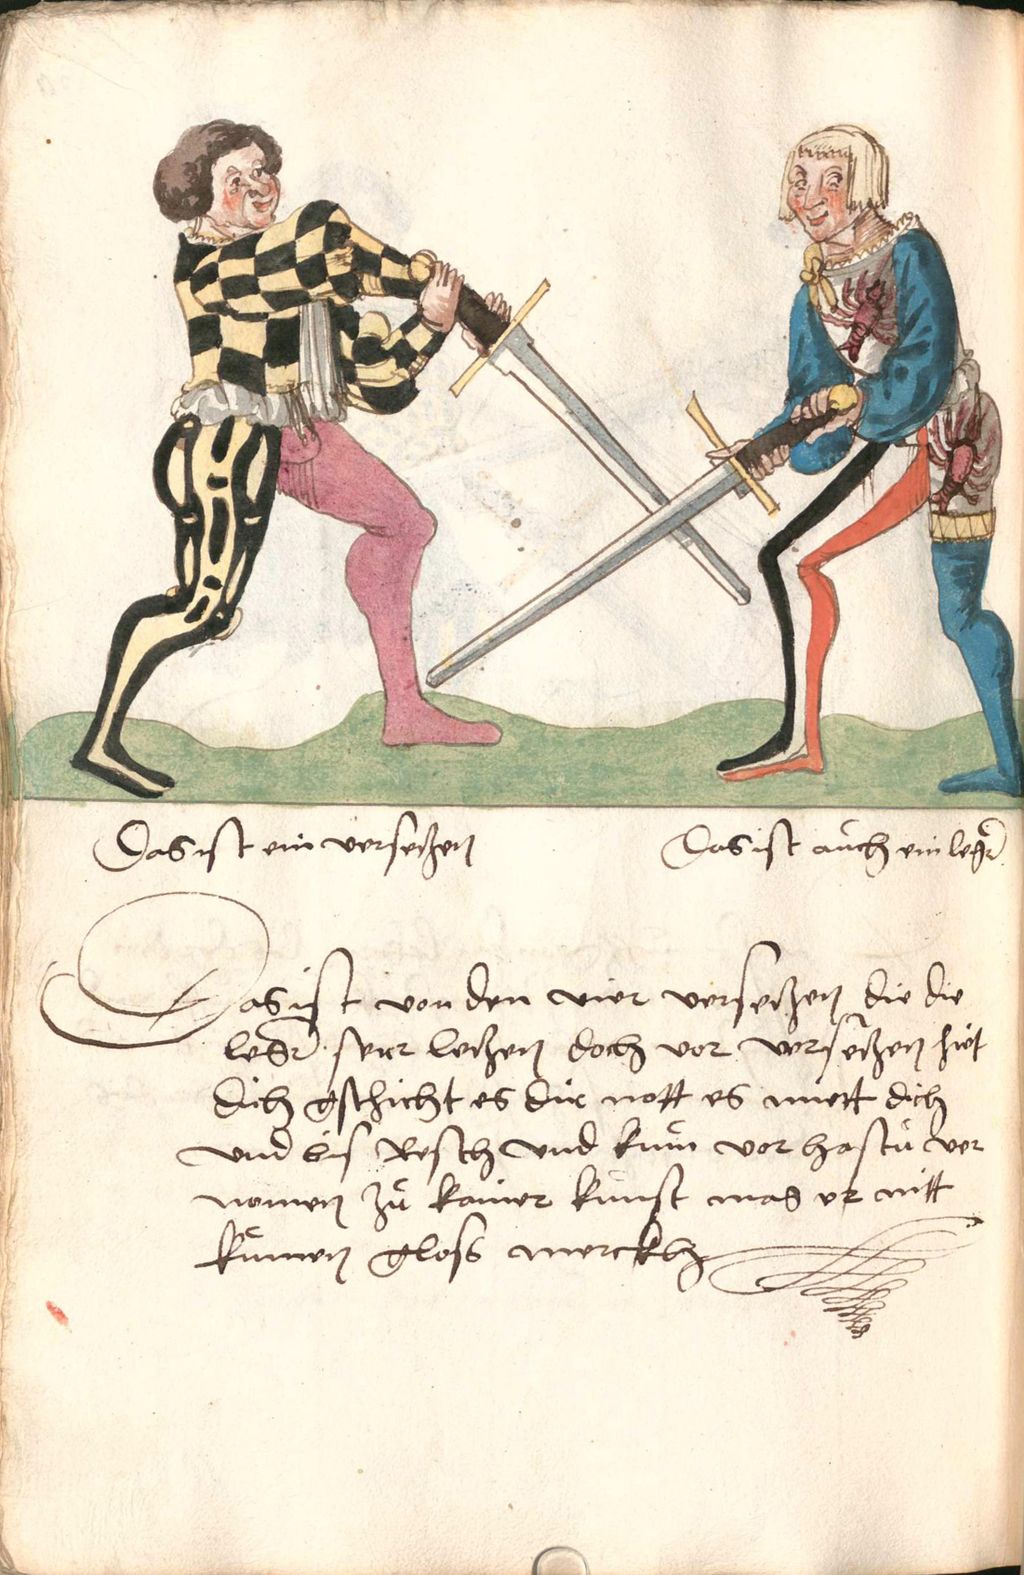 Das ist ein versetzen
Das ist auch ein leger
Das ist von den vier versetzen die die
leger serr letzen doch vor versetzen hiet
dich gschicht es dir nott es miett dich
und bis Resch und kün vor hastu ver
nomen zu kainer künst mag er nitt
kümen gloss merckh